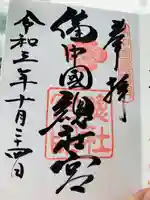 奉拝
備中國總社宮
令和三年十月二十四日